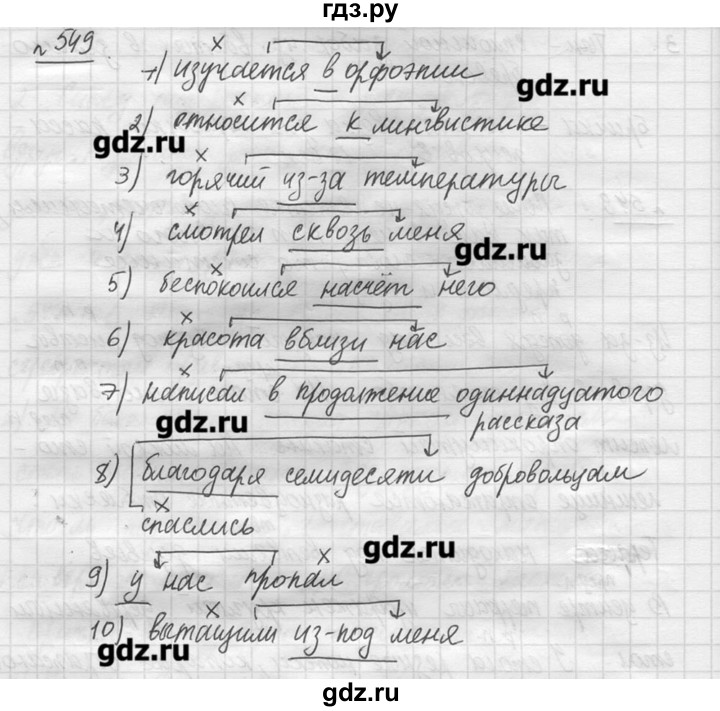 гдз.ру
№ 549
1) изучается в орфоэпии
gdz.ru
2) относится к лингвистике
gdz.ru
3) горячий из-за температуры
4) смотрел сквозь меня
gdz.ru
5) беспокоился насчёт него
6) красота вблизи нас
7) написал в продолжение одиннадцатого
рассказа
gdz.ru
8) благодаря семидесяти добровольцам
спаслись
gdz.ru
9) у нас пропал
10) вытащили из-под меня
gdz.ru
gdz.ru